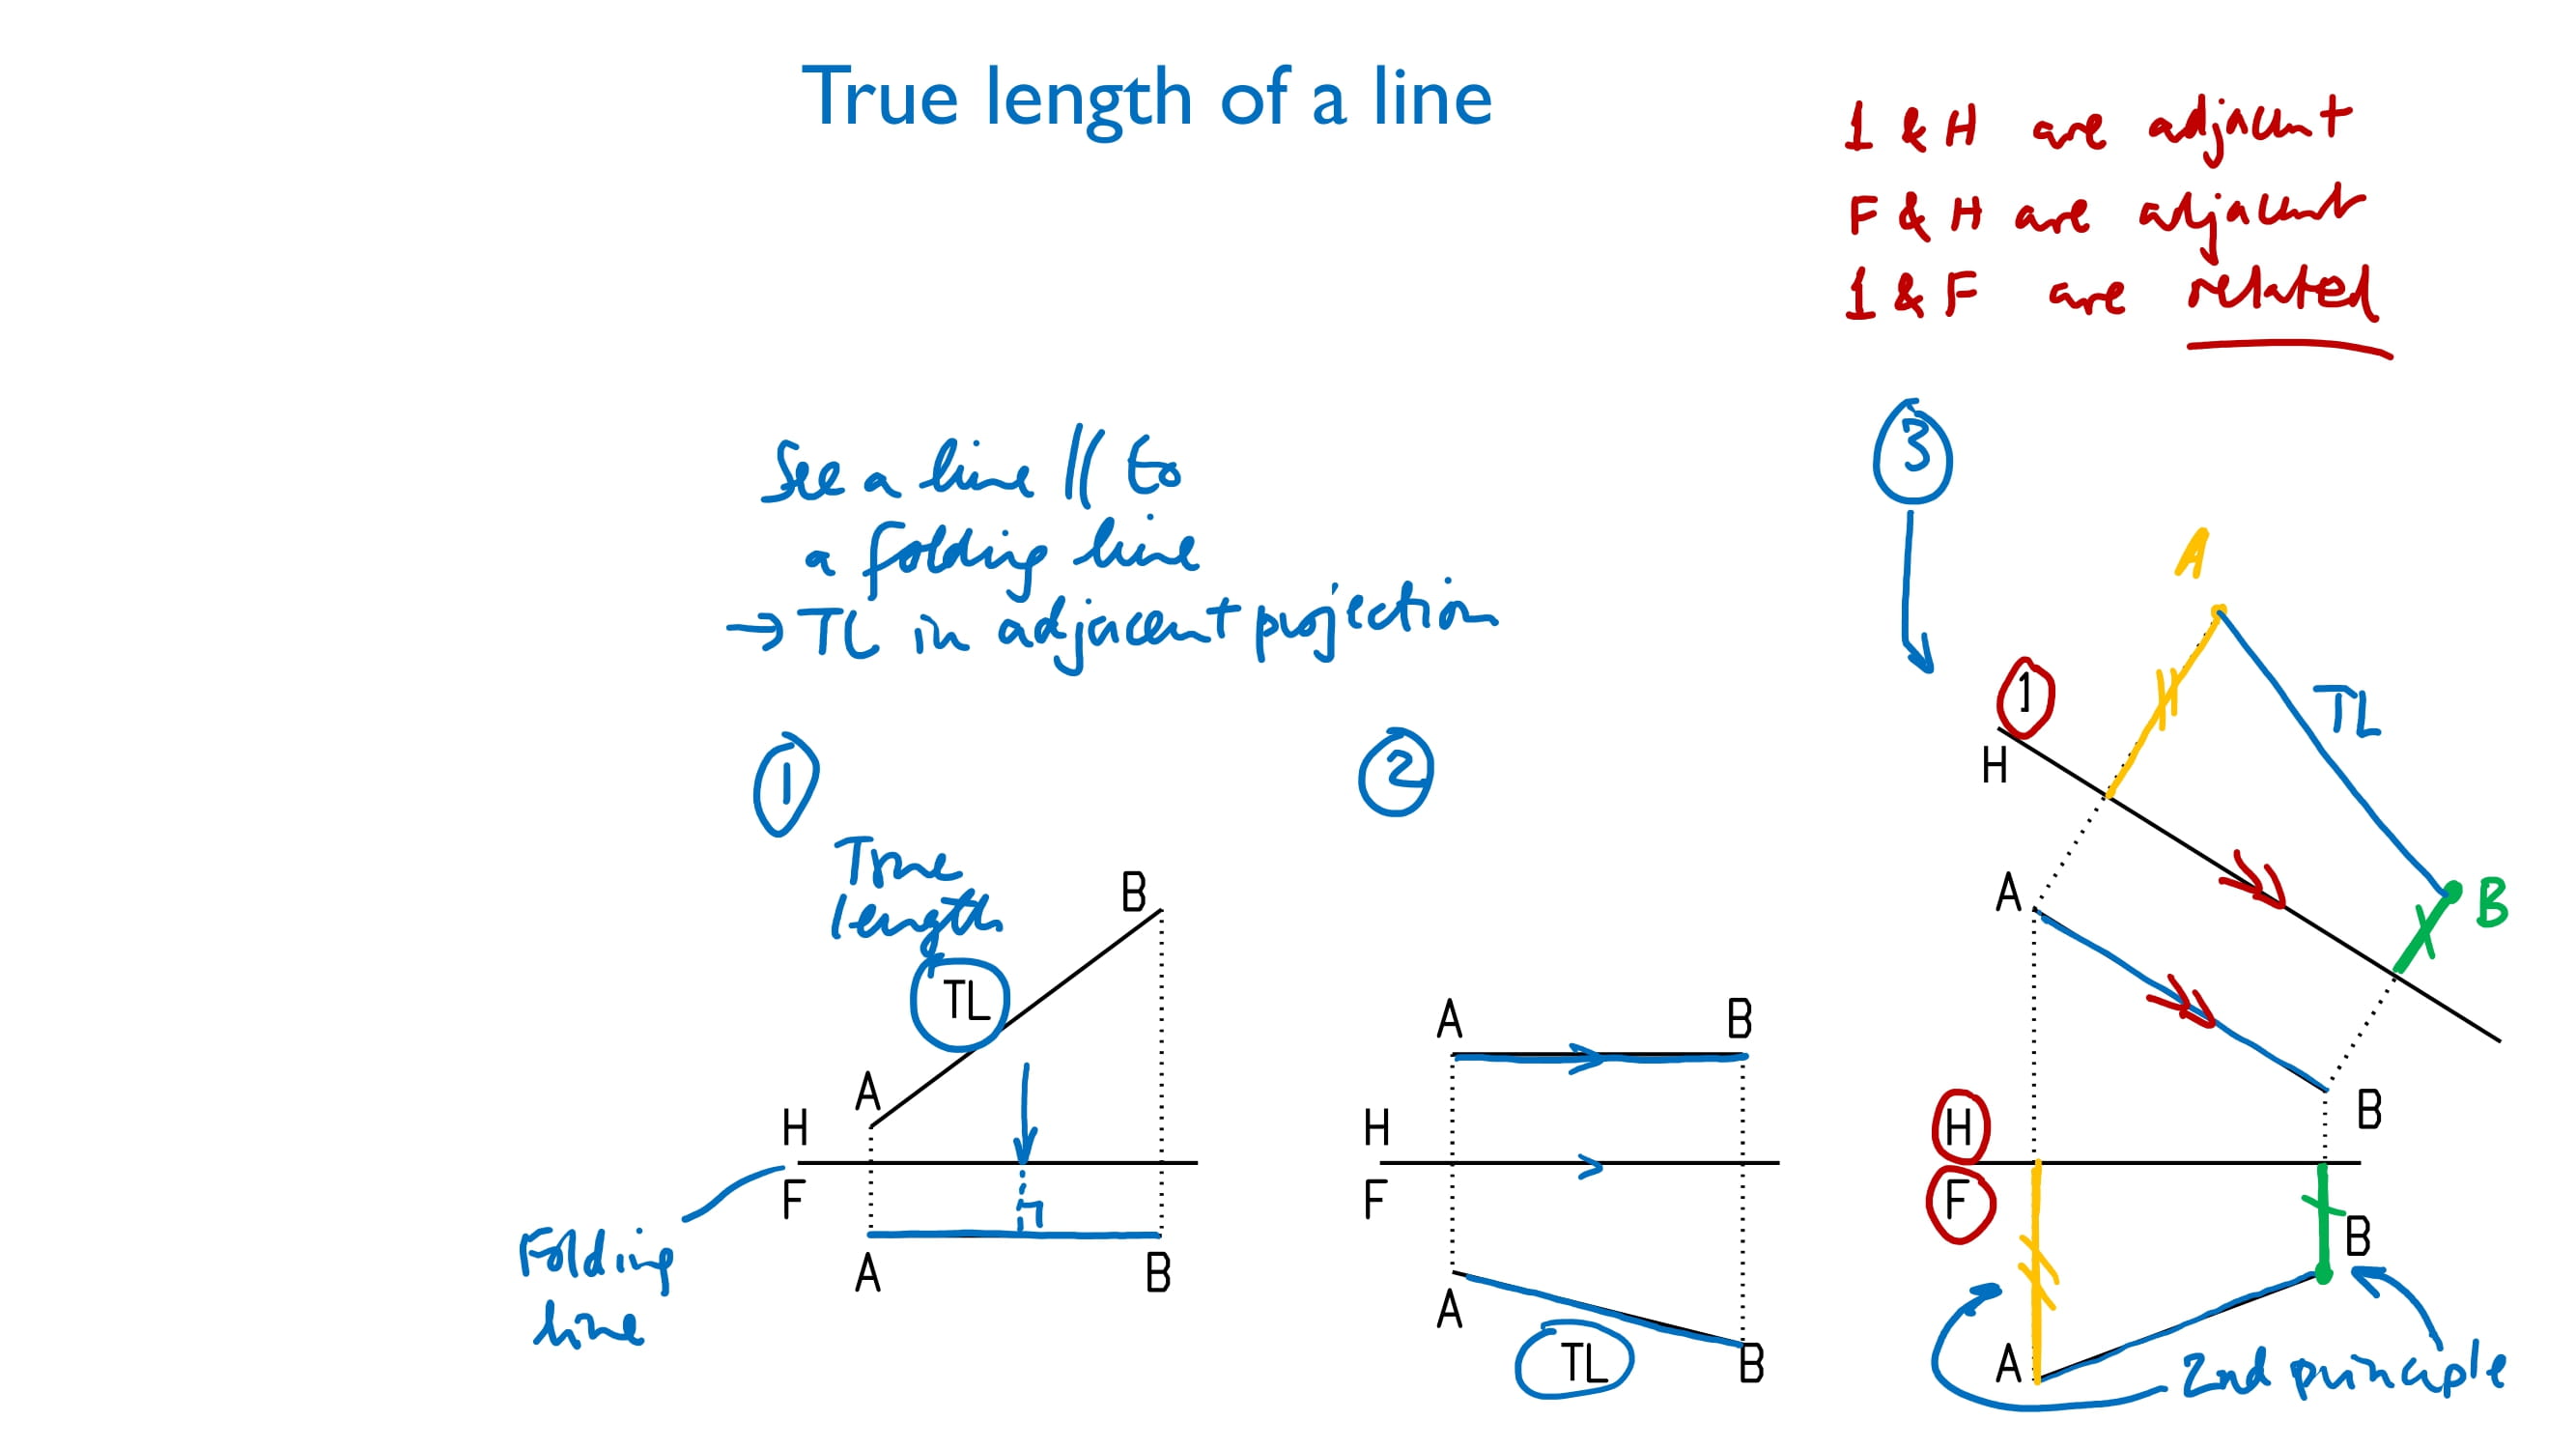 True length of a line
1 & H are adjacent
F & H are adjacent
1 & F are related
See a line // to
a folding line
→ TL in adjacent projection
1
True
length
TL
B
A
H
F
A
B
Folding
line
2
A
B
H
F
A
B
TL
3
A
TL
1
H
A
B
B
H
F
B
A
2nd principle